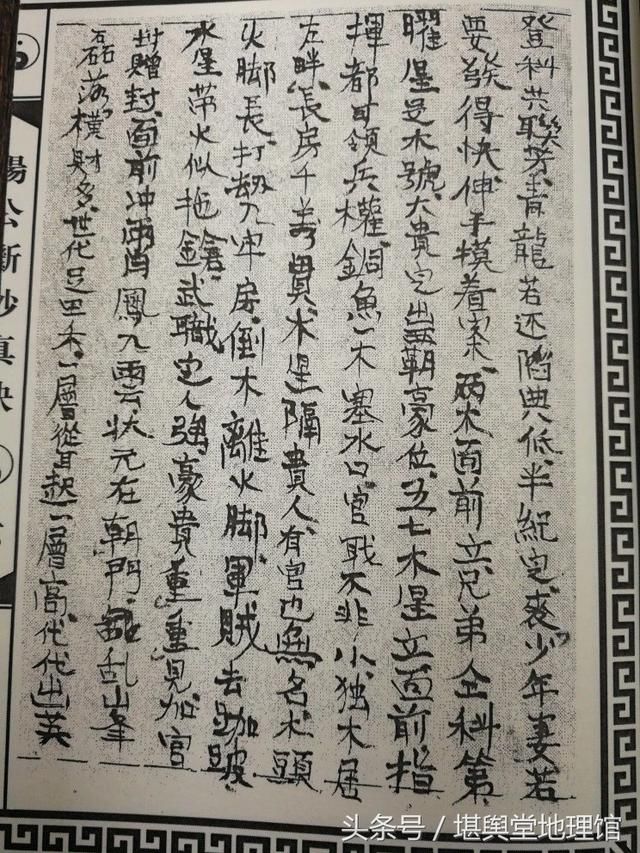 登科共聯芳。青龍若还陷與低。半紀定丧少年妻。若
要發得快。伸手摸着案。两木面前立。兄弟仝科第。
曜星是木號。大貴定出霸豪位。五七木星立面前。指
揮都司領兵權。銅魚一木塞水口。官職不非小。独木居
左畔。長房千萬貫。木星隔貴人。有官也無名。木頭
火脚長。打劫入牢房。倒木離火脚。軍賊去跏跛
水星帶火似拖鎗。武職定人強豪貴。重重見加官
封贈封。面前冲两鳳入兩云。状元在朝門。乱山峯
磊落横財多。世代足田禾。一層從耳起一層高。代代出英
楊公斷妙真訣
头条号 / 堪舆堂地理馆